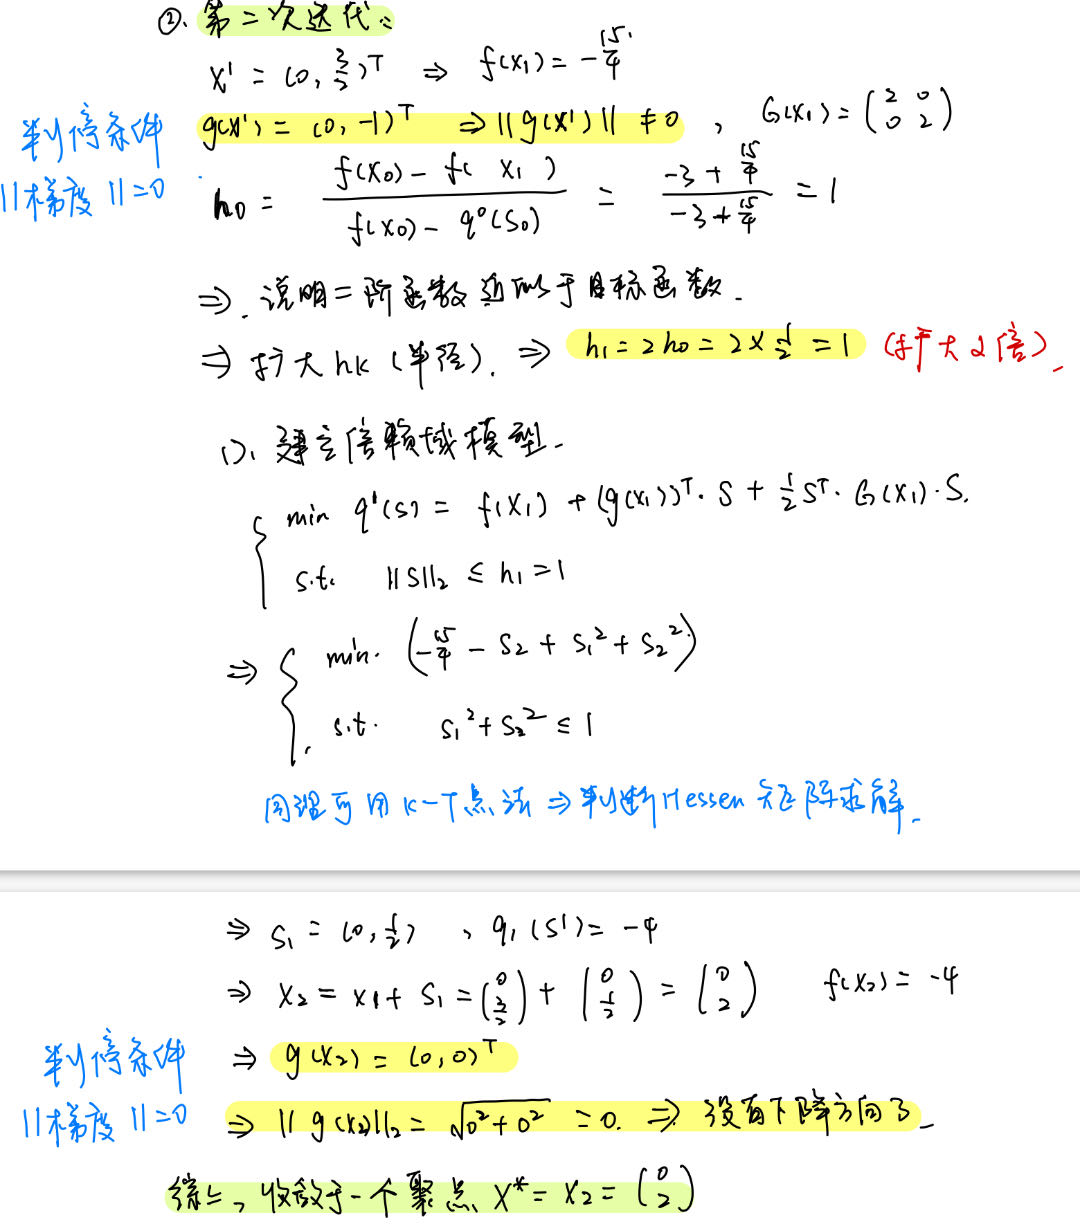 ②. 第二次迭代:
x¹ = (0, 3/2)ᵀ ⇒ f(x₁) = -15/4
判停条件 g(x¹) = (0, -1)ᵀ ⇒ ||g(x¹)|| ≠ 0 , G(x₁) = (2 0 0 2)
||梯度||=0 h₀ = (f(x₀) - f(x₁)) / (f(x₀) - q⁰(S₀)) = (-3 + 15/4) / (-3 + 15/4) = 1
⇒. 说明二阶函数近似于目标函数.
⇒ 扩大 hk (半径). ⇒ h₁ = 2h₀ = 2 × 1/2 = 1 (扩大2倍).
1). 建立信赖域模型.
min q¹(s) = f(x₁) + (g(x₁))ᵀ· S + 1/2 Sᵀ· G(x₁)· S.
s.t. ||S||₂ ≤ h₁ = 1
⇒ min. (-15/4 - S₂ + S₁² + S₂²)
s.t. S₁² + S₂² ≤ 1
同理可用 K-T点法 ⇒ 判断Hessen矩阵求解.
⇒ S₁ = (0, 1/2) , q₁(S¹) = -4
⇒ x₂ = x₁ + S₁ = (0 3/2) + (0 1/2) = (0 2) f(x₂) = -4
判停条件 ⇒ g(x₂) = (0, 0)ᵀ
||梯度||=0 ⇒ ||g(x₂)||₂ = √0²+0² = 0. ⇒ 没有下降方向了.
综上, 收敛于一个聚点 X* = X₂ = (0 2)